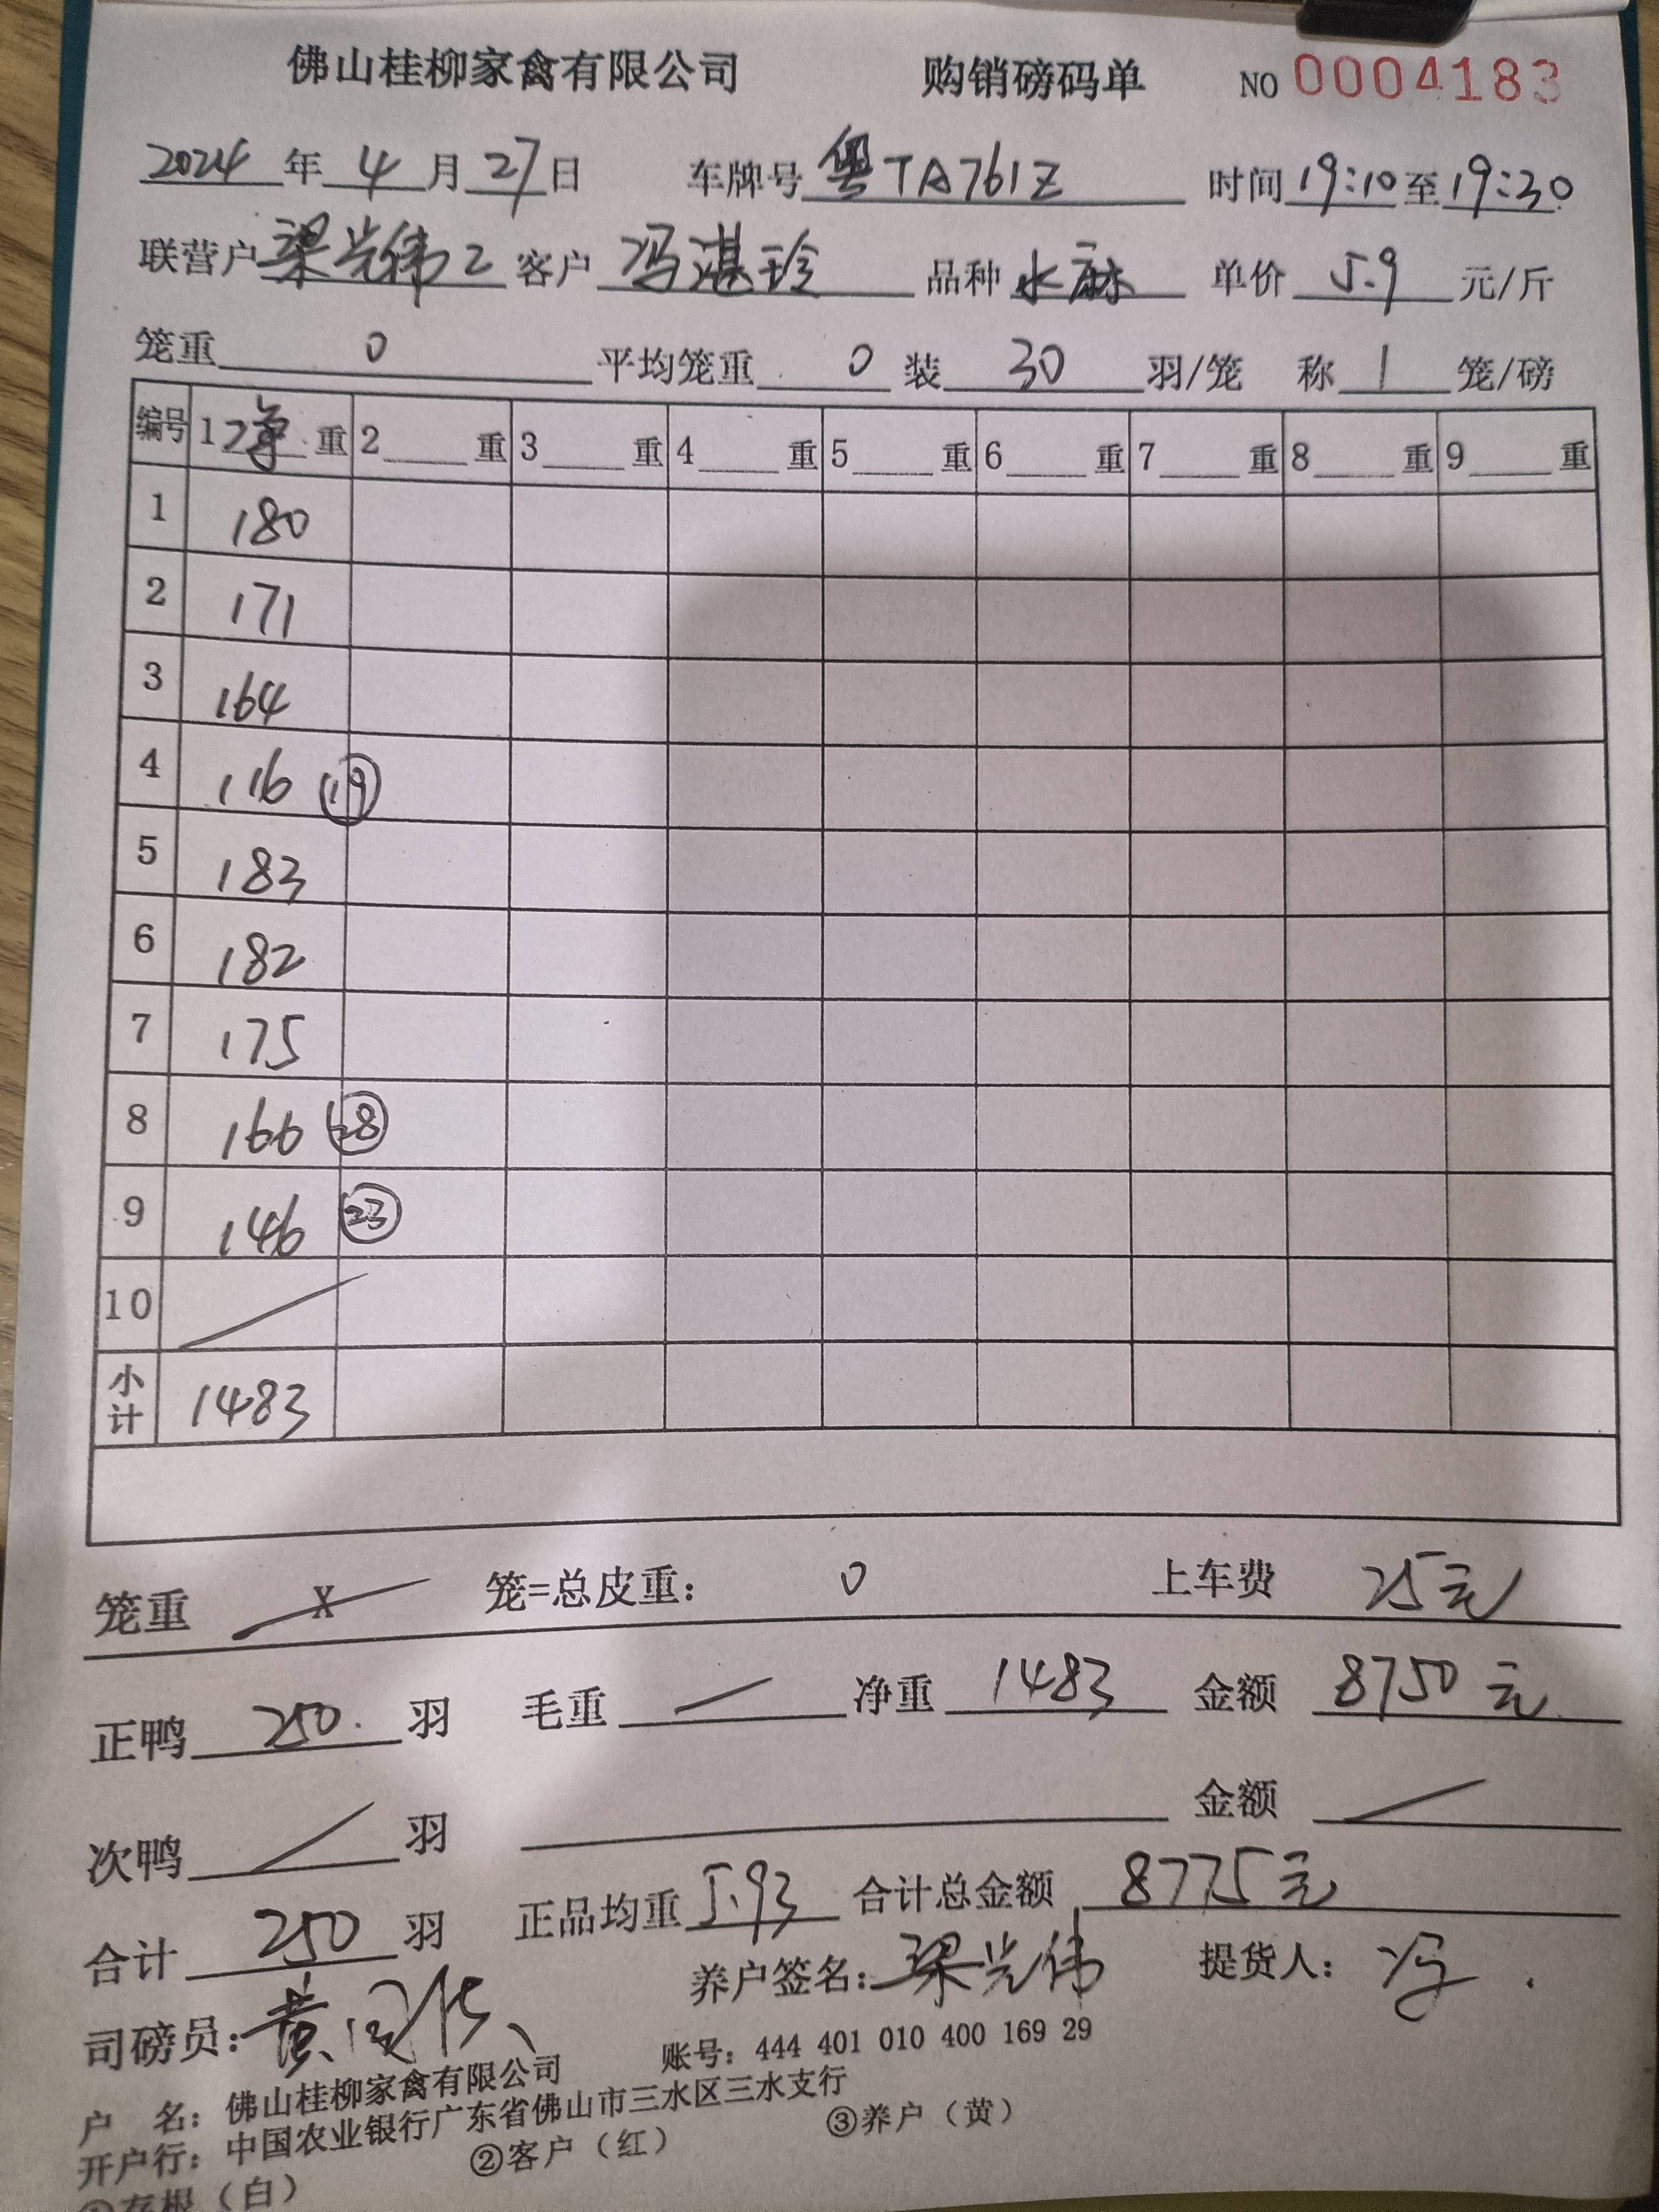 佛山桂柳家禽有限公司 购销磅码单 NO 0004183
2024年4月27日 车牌号 粤TA761Z 时间 19:10至19:30
联营户 梁光伟2 客户 冯湛玲 品种 水麻 单价 5.9 元/斤
笼重 0 平均笼重 0 装 30 羽/笼 称 1 笼/磅
编号 1净重 2 重 3 重 4 重 5 重 6 重 7 重 8 重 9 重
1 180
2 171
3 164
4 116 (19)
5 183
6 182
7 175
8 166 (28)
9 146 (23)
10
小计 1483
笼重 X 笼=总皮重: 0 上车费 25元
正鸭 250. 羽 毛重 净重 1483 金额 8750元
次鸭 羽 金额
合计 250 羽 正品均重 5.93 合计总金额 8775元
司磅员: 黄 养户签名: 梁光伟 提货人: 冯
户 名: 佛山桂柳家禽有限公司 账号: 444 401 010 400 169 29
开户行: 中国农业银行广东省佛山市三水区三水支行
①存根（白） ②客户（红） ③养户（黄）